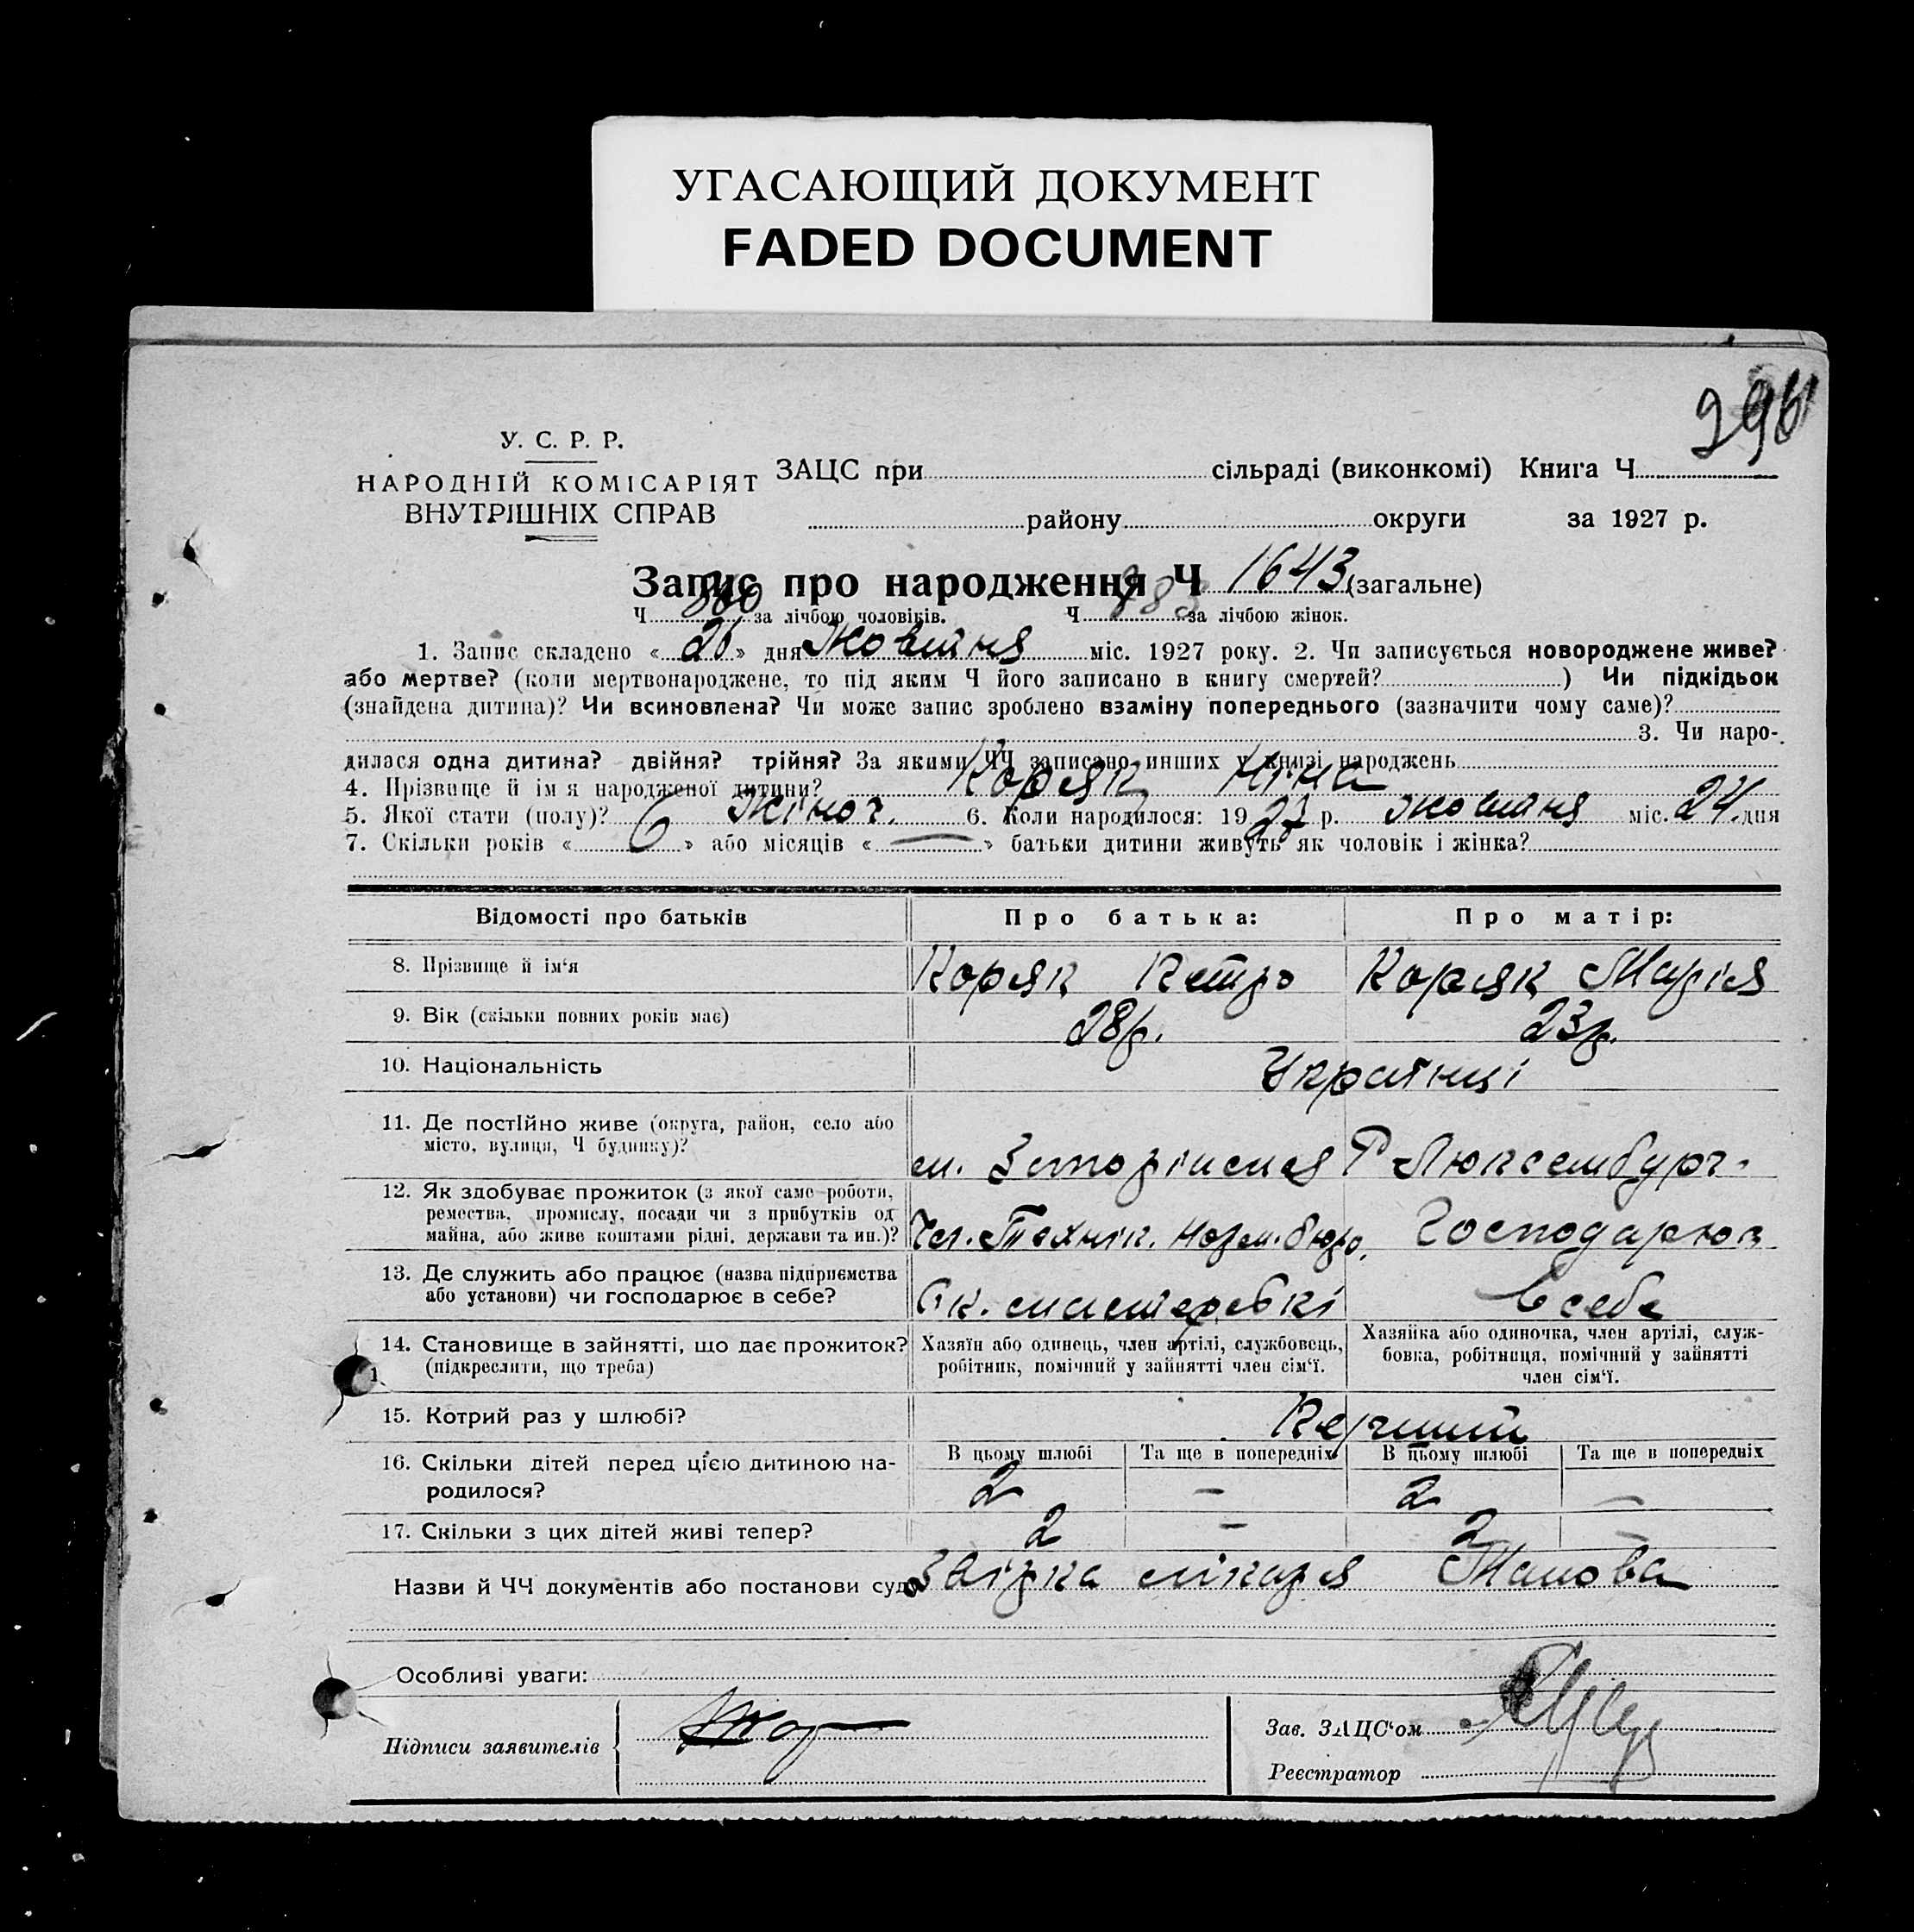 УГАСАЮЩИЙ ДОКУМЕНТ
FADED DOCUMENT
296
У. С. Р. Р.
НАРОДНІЙ КОМІСАРІЯТ
ВНУТРІШНІХ СПРАВ
ЗАЦС при сільраді (виконкомі) Книга Ч
району округи за 1927 р.
Запис про народження Ч 1643 (загальне)
Ч 860 за лічбою чоловіків. Ч 783 за лічбою жінок.
1. Запис складено « 26 » дня Жовтня міс. 1927 року. 2. Чи записується новороджене живе?
або мертве? (коли мертвонароджене, то під яким Ч його записано в книгу смертей? ) Чи підкідьок
(знайдена дитина)? Чи всиновлена? Чи може запис зроблено взаміну попереднього (зазначити чому саме)?
3. Чи наро-
дилася одна дитина? двійня? трійня? За якими ЧЧ записано инших у книзі народжень
4. Прізвище й ім я народженої дитини? Коряк Ніна
5. Якої стати (полу)? Жіноч. 6. Коли народилося: 1927 р. Жовтня міс. 24 дня
7. Скільки років « 6 » або місяців « — » батьки дитини живуть як чоловік і жінка?
Відомості про батьків Про батька: Про матір:
8. Прізвище й ім‘я Коряк Петро Коряк Марія
9. Вік (скільки повних років має) 28р. 23р.
10. Національність Українці
11. Де постІйно живе (округа, район, село або
місто, вулиця, Ч будинку)?
м. Р Люксембург
12. Як здобуває прожиток (з якої саме роботи,
ремества, промислу, посади чи з прибутків од
майна, або живе коштами рідні, держави та ин.)?
Технік. Норм. бюро, Господарює
13. Де служить або працює (назва підприємства
або установи) чи господарює в себе?
майстеровкі в себе
14. Становище в зайнятті, що дає прожиток?
(підкреслити, що треба)
Хазяїн або одинець, член артілі, службовець,
робітник, помічний у зайнятті член сім‘ї.
Хазяйка або одиночка, член артілі, служ-
бовка, робітниця, помічний у зайнятті
член сім‘ї.
15. Котрий раз у шлюбі? Перший
16. Скільки дітей перед цією дитиною на-
родилося?
В цьому шлюбі Та ще в попередніх В цьому шлюбі Та ще в попередніх
2 — 2 —
17. Скільки з цих дітей живі тепер? 2 — 2 —
Назви й ЧЧ документів або постанови суду лікаря
Особливі уваги:
Підписи заявителів
Зав. ЗАЦС‘ом
Реєстратор